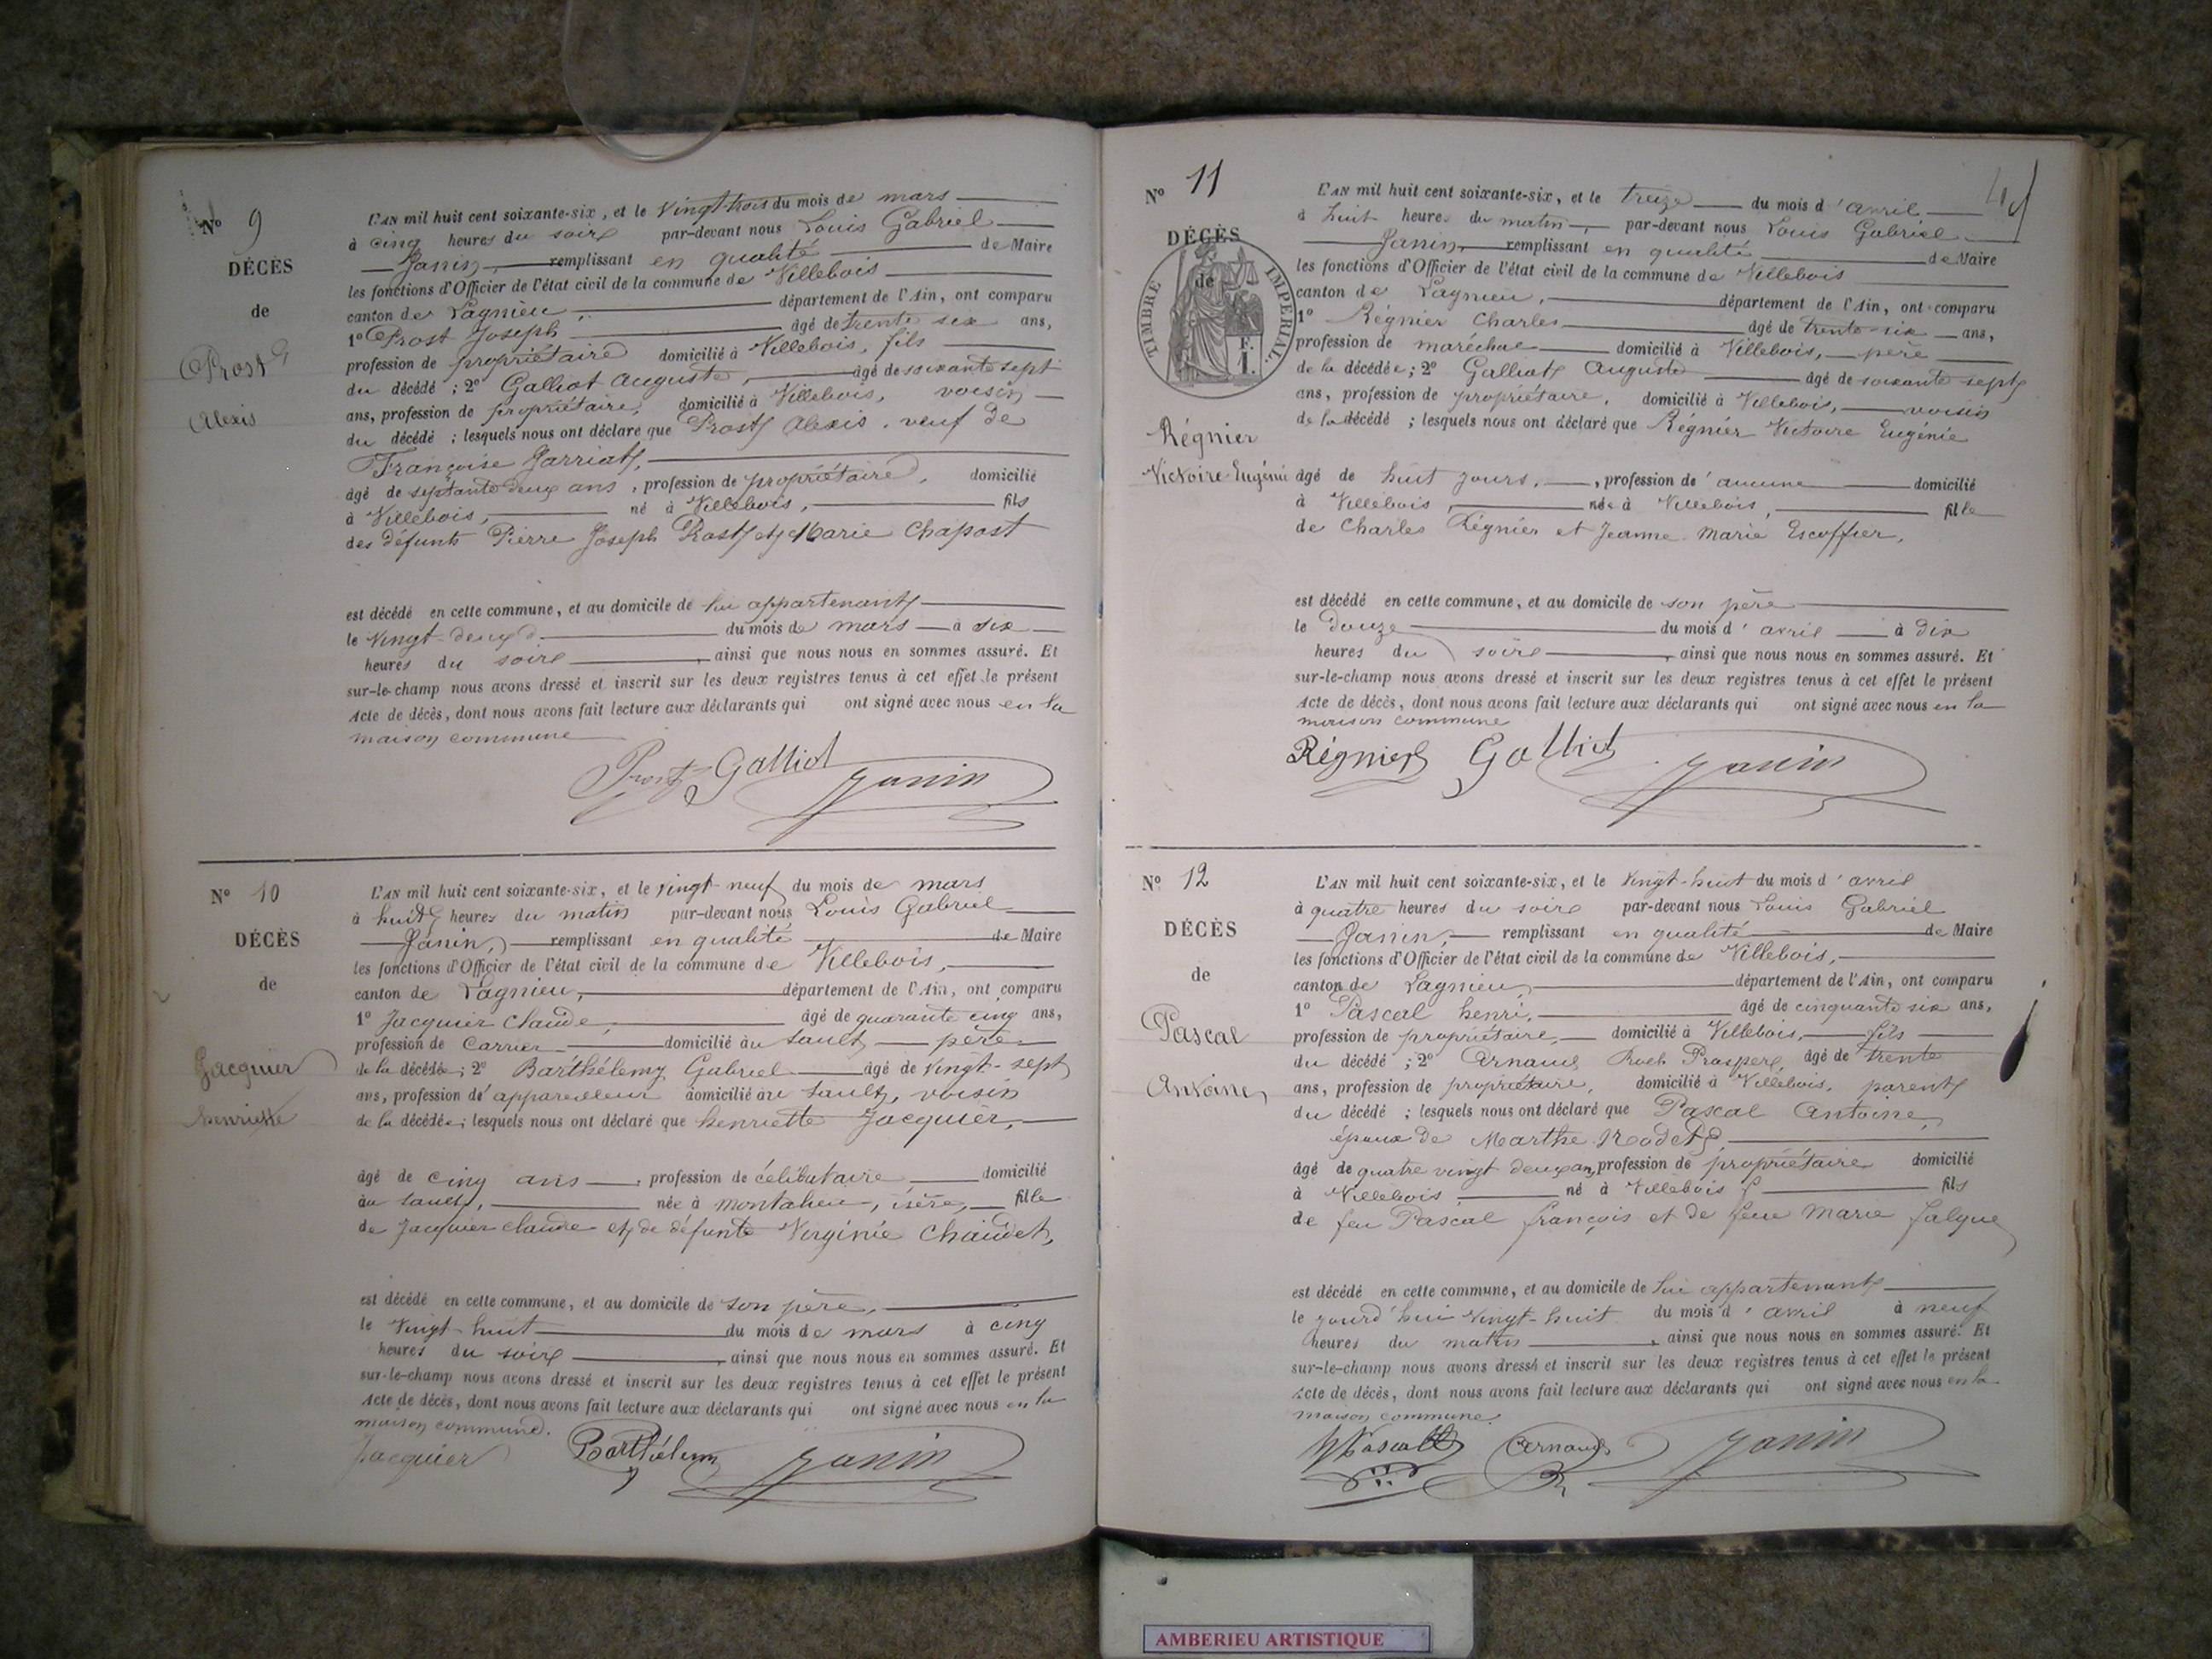 Nº 9
DÉCÈS
de
Prost
Alexis
L'AN mil huit cent soixante-six, et le vingt trois du mois de mars
à cinq heures du soire par-devant nous Louis Gabriel
Janin, remplissant en qualité de Maire
les fonctions d'Officier de l'état civil de la commune de Villebois
canton de Lagnieu, département de l'Ain, ont comparu
1º Prost Joseph âgé de trente six ans,
profession de propriétaire domicilié à Villebois, fils
du décédé ; 2º Galliot Auguste, âgé de soixante sept
ans, profession de propriétaire, domicilié à Villebois, voisin
du décédé ; lesquels nous ont déclaré que Prost Alexis, veuf de
Françoise Jarriat,
âgé de septante deux ans, profession de propriétaire, domicilié
à Villebois, né à Villebois, fils
des défunts Pierre Joseph Prost et Marie Chapost
est décédé en cette commune, et au domicile de lui appartenant
le vingt-deux du mois de mars à six
heures du soire, ainsi que nous nous en sommes assuré. Et
sur-le-champ nous avons dressé et inscrit sur les deux registres tenus à cet effet le présent
Acte de décès, dont nous avons fait lecture aux déclarants qui ont signé avec nous en la
maison commune
Prost Galliot Janin
Nº 10
DÉCÈS
de
Jacquier
henriette
L'AN mil huit cent soixante-six, et le vingt-neuf du mois de mars
à huit heures du matin par-devant nous Louis Gabriel
Janin, remplissant en qualité de Maire
les fonctions d'Officier de l'état civil de la commune de Villebois,
canton de Lagnieu, département de l'Ain, ont comparu
1º Jacquier Claude, âgé de quarante cinq ans,
profession de Carrier domicilié au Sault père
de la décédée; 2º Barthélemy Gabriel âgé de vingt-sept
ans, profession d'appareilleur domicilié au Sault, voisin
de la décédée; lesquels nous ont déclaré que henriette Jacquier,
âgé de cinq ans, profession de célibataire domicilié
au Sault, née à montalieu, isère, fille
de Jacquier Claude et de défunte Virginie Chaudet,
est décédé en cette commune, et au domicile de son père,
le vingt-huit du mois de mars à cinq
heures du soire, ainsi que nous nous en sommes assuré. Et
sur-le-champ nous avons dressé et inscrit sur les deux registres tenus à cet effet le présent
Acte de décès, dont nous avons fait lecture aux déclarants qui ont signé avec nous en la
maison commune.
Jacquier Barthélemy Janin
Nº 11
DÉCÈS
de
TIMBRE IMPERIAL.
F.
1.
Régnier
Victoire Eugénie
L'AN mil huit cent soixante-six, et le treize du mois d'avril,
à huit heures du matin, par-devant nous Louis Gabriel
Janin, remplissant en qualité de Maire
les fonctions d'Officier de l'état civil de la commune de Villebois
canton de Lagnieu, département de l'Ain, ont comparu
1º Régnier Charles âgé de trente-six ans,
profession de maréchal domicilié à Villebois, père
de la décédée; 2º Galliot Auguste âgé de soixante sept
ans, profession de propriétaire, domicilié à Villebois, voisin
de la décédé ; lesquels nous ont déclaré que Régnier Victoire Eugénie
âgé de huit jours, profession d'aucune domicilié
à Villebois, née à Villebois, fille
de Charles Régnier et Jeanne Marie Escoffier,
est décédé en cette commune, et au domicile de son père
le douze du mois d'avril à dix
heures du soire, ainsi que nous nous en sommes assuré. Et
sur-le-champ nous avons dressé et inscrit sur les deux registres tenus à cet effet le présent
Acte de décès, dont nous avons fait lecture aux déclarants qui ont signé avec nous en la
maison commune
Régnier Galliot Janin
Nº 12
DÉCÈS
de
Pascal
Antoine,
L'AN mil huit cent soixante-six, et le vingt-huit du mois d'avril
à quatre heures du soire par-devant nous Louis Gabriel
Janin, remplissant en qualité de Maire
les fonctions d'Officier de l'état civil de la commune de Villebois,
canton de Lagnieu, département de l'Ain, ont comparu
1º Pascal henri, âgé de cinquante six ans,
profession de propriétaire, domicilié à Villebois, fils
du décédé ; 2º Arnaud Roch Prosper, âgé de trente
ans, profession de propriétaire, domicilié à Villebois, parent
du décédé ; lesquels nous ont déclaré que Pascal Antoine,
époux de Marthe Rodet,
âgé de quatre vingt deux ans, profession de propriétaire domicilié
à Villebois né à Villebois fils
de feu Pascal françois et de feue Marie Falque
est décédé en cette commune, et au domicile de lui appartenant
le jourd'hui vingt-huit du mois d'avril à neuf
heures du matin, ainsi que nous nous en sommes assuré. Et
sur-le-champ nous avons dressé et inscrit sur les deux registres tenus à cet effet le présent
Acte de décès, dont nous avons fait lecture aux déclarants qui ont signé avec nous en la
maison commune.
HPascal Arnaud Janin
AMBERIEU ARTISTIQUE